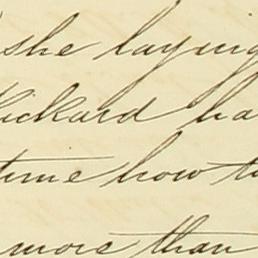 she laying
Rickard ha
time how to
more than